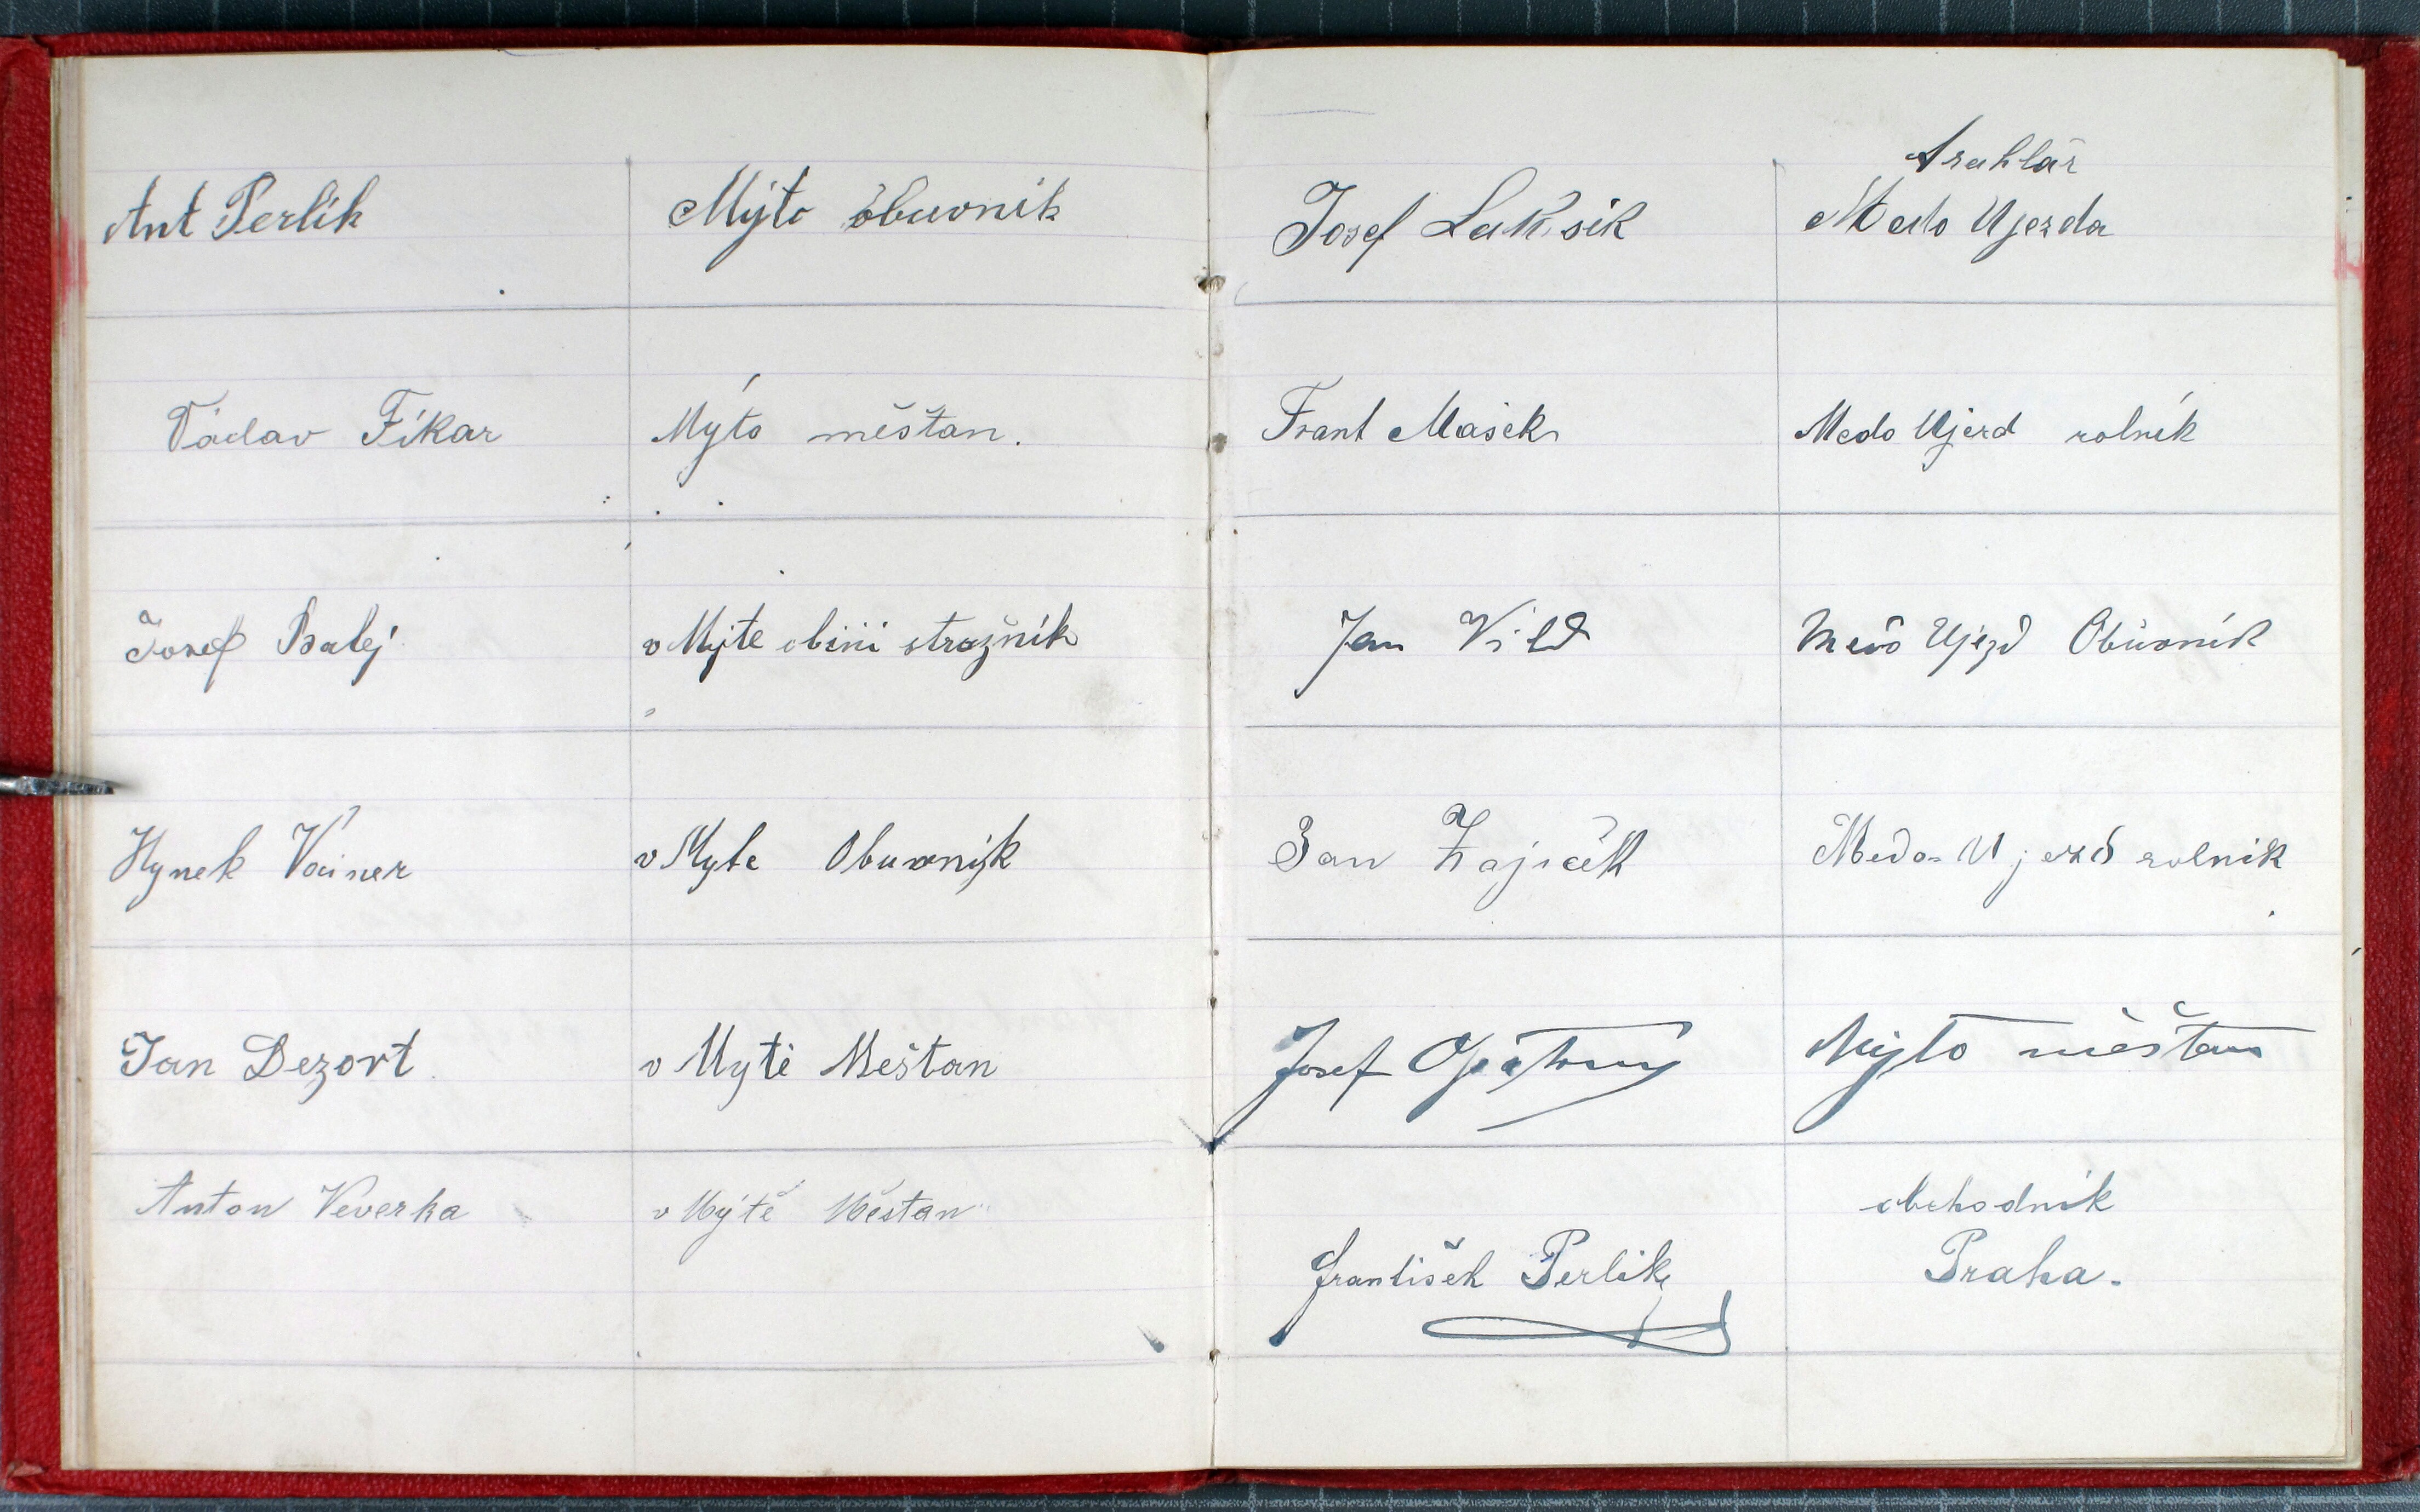 Ant Perlík Mýto obuvník
Václav Fíkar Mýto měštan.
Josef Balej v Mýtě obcní strážník
Hynek Vainer v Mytě Obuvnik
Jan Dezort v Mytě Měštan
Anton Veverka v Mýtě Měštan
Truhlár
Josef Lukšik Medo Ujezda
Frant Mašek Medo Ujezd rolník
Jan Vild Medo Ujezd Obůvník
Jan Zajiček Medo-Ujezd rolnik
Josef Opatrný Mýto měštan
obchodník
František Perlík Praha.